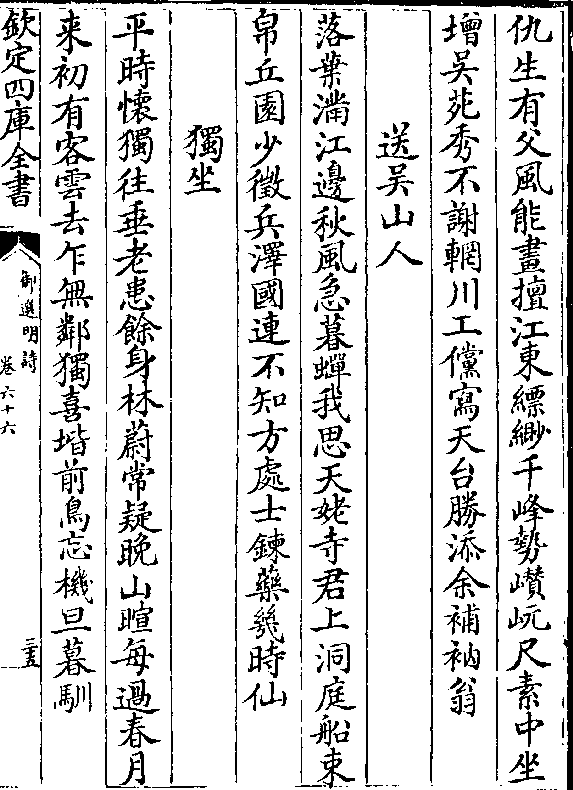 仇生有父風能畫擅江東縹緲千峰勢巑岏尺素中坐
增吳苑秀不謝輞川工儻寫天台勝添余補衲翁
送吳山人
落葉滿江邊秋風急暮蟬我思天姥寺君上洞庭船束
帛丘園少徵兵澤國連不知方處士鍊藥幾時仙
獨坐
平時懷獨往垂老患餘身林蔚常疑晚山暄每過春月
来初有客雲去乍無鄰獨喜堦前鳥忘機旦暮馴
欽定四庫全書
御選明詩
卷六十六
三五